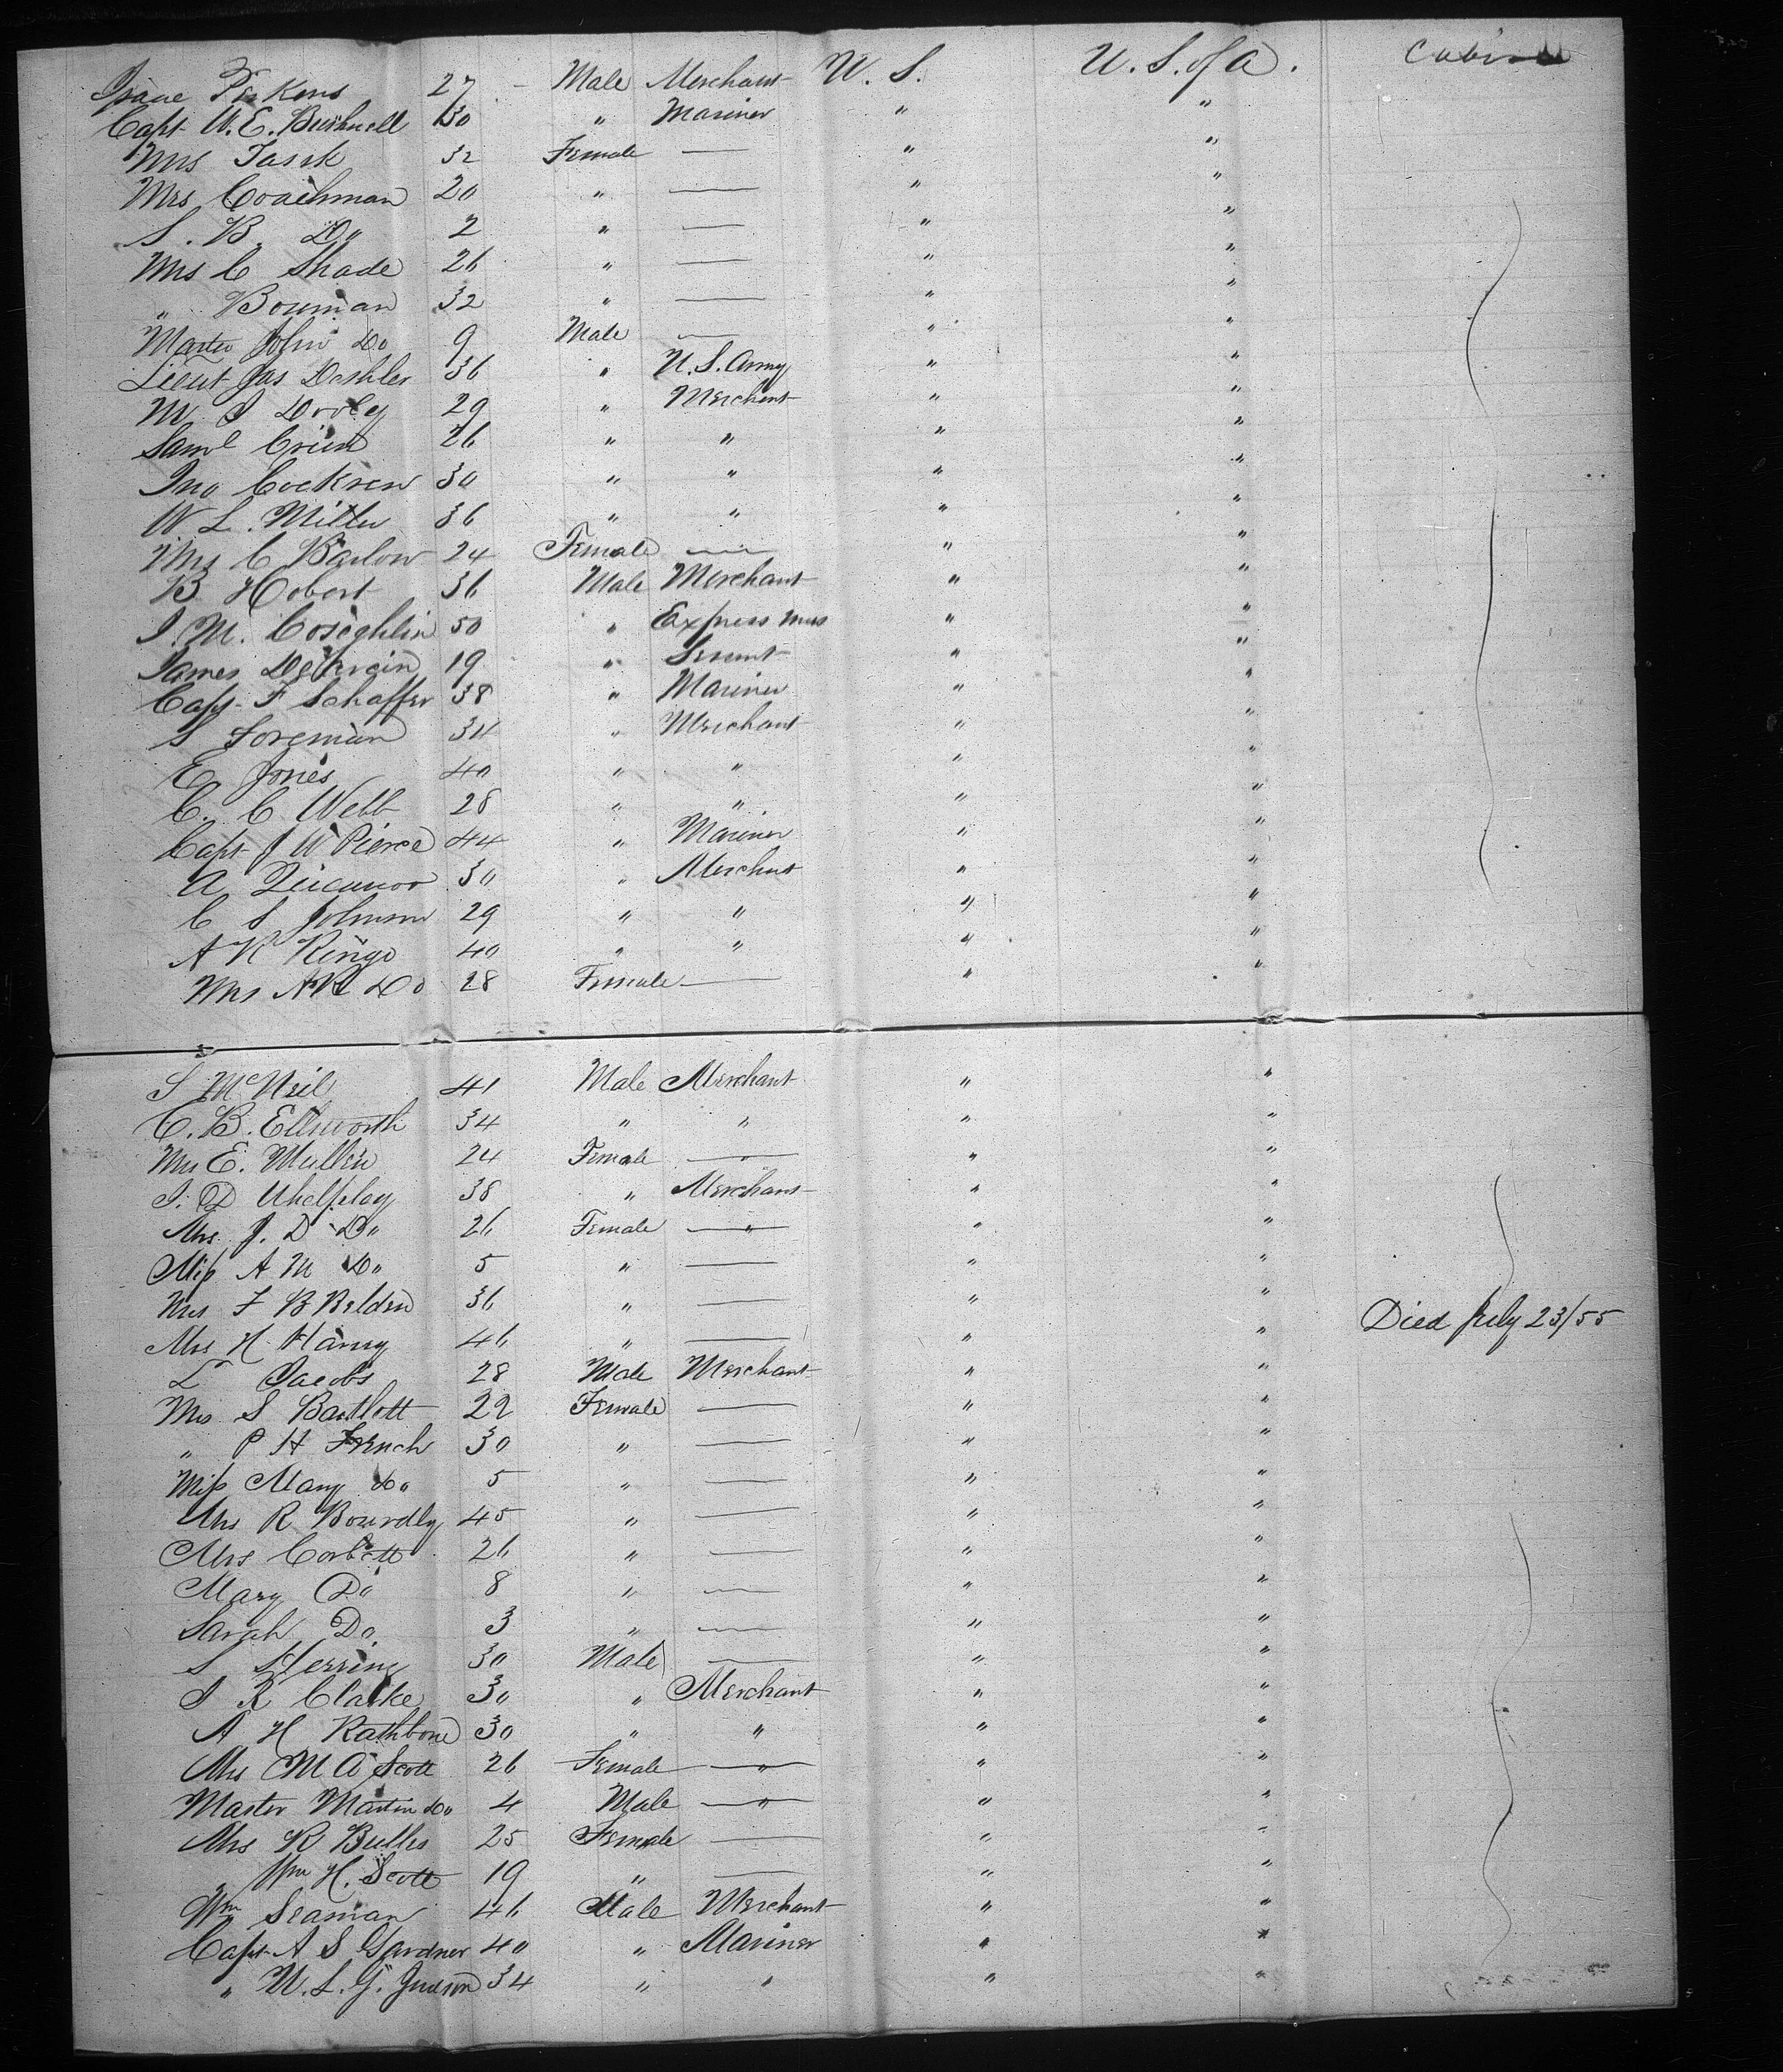 Isaac Perkins 27 - Male Merchant U. S. U. S. of A. Cabin
Capt W. E. Bushnell 30 " Mariner " "
Mrs 32 Female — " "
Mrs Coachman 20 " — " "
S. B. Do 2 " — " "
Mrs C Shade 26 " — " "
" Bowman 32 " — " "
Master John Do 9 Male — " "
Lieut Jas Deshler 36 " U. S. Army " "
M. S Dooley 29 " Merchant " "
Saml 26 " " " "
Jno Cockren 30 " " " "
W L. Miller 36 " " " "
Mrs C Barlow 24 Female — " "
B Hobart 36 Male Merchant " "
J. M. Coseghlin 50 " Express " "
James 19 " " "
Capt F Schaffer 38 " Mariner " "
S Foreman 34 " Merchant " "
E Jones 40 " " " "
C. C Webb 28 " " " "
Capt J W Pierce 44 " Mariner " "
A 30 " Merchant " "
C S Johnson 29 " " " "
A R Ringo 40 " " " "
Mrs A R Do 28 Female — " "
S McNeil 41 Male Merchant " "
C. B. Ellsworth 34 " " " "
Mrs E. Mullen 24 Female — " "
J. D Whelpley 38 " Merchant " "
Mrs. J. D Do 26 Female — " " "
Miss A M Do 5 " — " "
Mrs F B Belden 36 " — " " Died July 23/55
Mrs H Haney 46 " — " "
L Jacobs 28 Male Merchant " "
Mrs S Bartlett 22 Female — " "
" P H French 30 " — " "
Miss Mary Do 5 " — " "
Mrs R Bourdly 45 " — " "
Mrs Corbett 26 " — " "
Mary Do 8 " — " "
Sarah Do. 3 " — " "
S Herring 30 Male — " "
J R Clarke 30 " Merchant " "
A H Rathbone 30 " " " "
Mrs M A Scott 26 Female — " " "
Master Martin Do 4 Male — " " "
Mrs R Butler 25 Female — " "
" Wm H. Scott 19 " — " "
Wm Seaman 46 Male Merchant " "
Capt A S Gardner 40 " Mariner " "
" W. L. G. Judson 34 " " " "